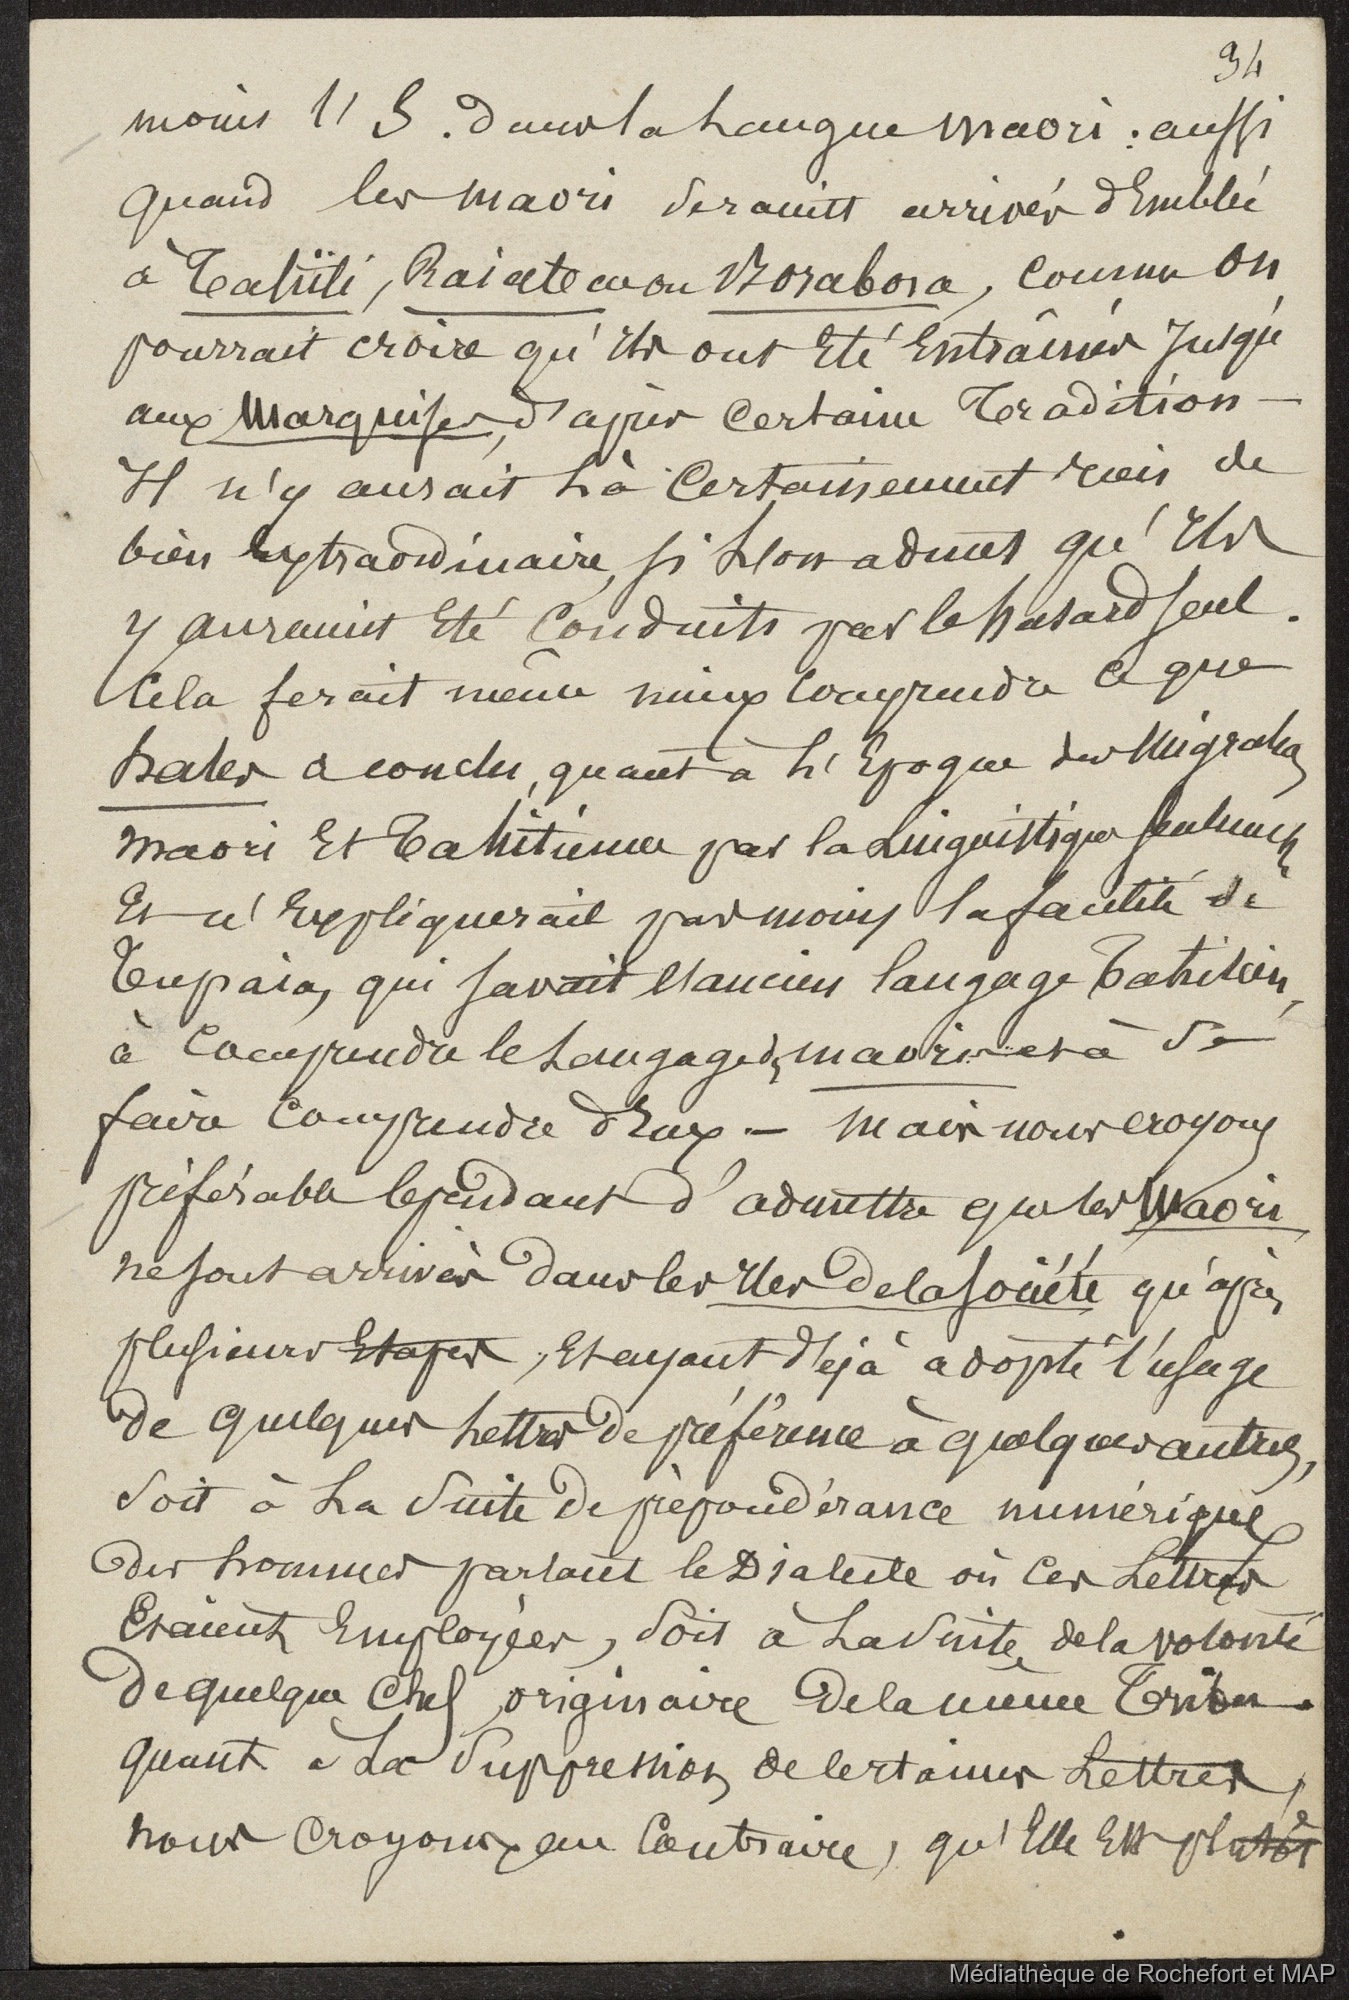 34
moins l'S. dans la Langue maori : aussi
quand les maori seraient arrivés d'Emblée
à Tahiti, Raiatea ou Borabora, comme on
pourrait croire qu'ils ont Eté Entrâinés Jusqu'
aux Marquises, d'après Certaine Tradition —
Il n'y aurait Là Certainement rien de
bien Extraordinaire, si L'on admet qu'Ils
y auraient Eté Conduits par le hasard seul.
Cela ferait même mieux Comprendre Ce que
hales a conclu, quant à L'Epoque des Migrations
maori Et Tahitienne par la Linguistique seulement,
Et n'Expliquerait pas moins la facilité de
Tupaia, qui savait l'ancien langage Tahitien,
à Comprendre le Langage des maoris et à se
faire Comprendre d'Eux — Mais nous croyons
préférable Cependant d'admettre que les Maoris
ne sont arrivés dans les Iles de la Société qu'après
plusieurs Etapes, Et ayant déjà adopté l'usage
de quelques Lettres de préférence à quelques autres,
soit à La Suite de prépondérance numérique
des hommes parlant le Dialecte où Ces Lettres
Etaient Employées, soit à La Suite de la volonté
de quelque Chef originaire de la même Tribu.
quant à La Suppression de Certaines Lettres,
nous Croyons, au Contraire, qu'Elle Est plutôt
Médiathèque de Rochefort et MAP